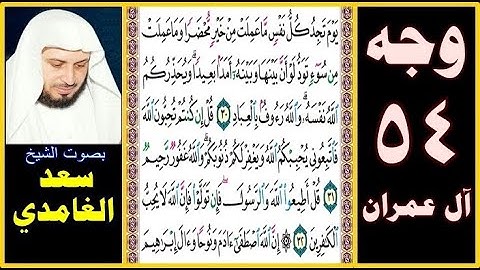 وجه
٥٤
آل عمران
يَوْمَ تَجِدُ كُلُّ نَفْسٍ مَّا عَمِلَتْ مِنْ خَيْرٍ مُّحْضَرًا وَمَا عَمِلَتْ
مِن سُوٓءٍ تَوَدُّ لَوْ أَنَّ بَيْنَهَا وَبَيْنَهُۥٓ أَمَدًۢا بَعِيدًا ۗ وَيُحَذِّرُكُمُ
ٱللَّهُ نَفْسَهُۥ ۗ وَٱللَّهُ رَءُوفٌۢ بِٱلْعِبَادِ ٣٠ قُلْ إِن كُنتُمْ تُحِبُّونَ ٱللَّهَ
فَٱتَّبِعُونِى يُحْبِبْكُمُ ٱللَّهُ وَيَغْفِرْ لَكُمْ ذُنُوبَكُمْ ۗ وَٱللَّهُ غَفُورٌ رَّحِيمٌ
٣١ قُلْ أَطِيعُوا۟ ٱللَّهَ وَٱلرَّسُولَ ۖ فَإِن تَوَلَّوْا۟ فَإِنَّ ٱللَّهَ لَا يُحِبُّ
ٱلْكَٰفِرِينَ ٣٢ ۞ إِنَّ ٱللَّهَ ٱصْطَفَىٰٓ ءَادَمَ وَنُوحًا وَءَالَ إِبْرَٰهِيمَ
بصوت الشيخ
سعد
الغامدي